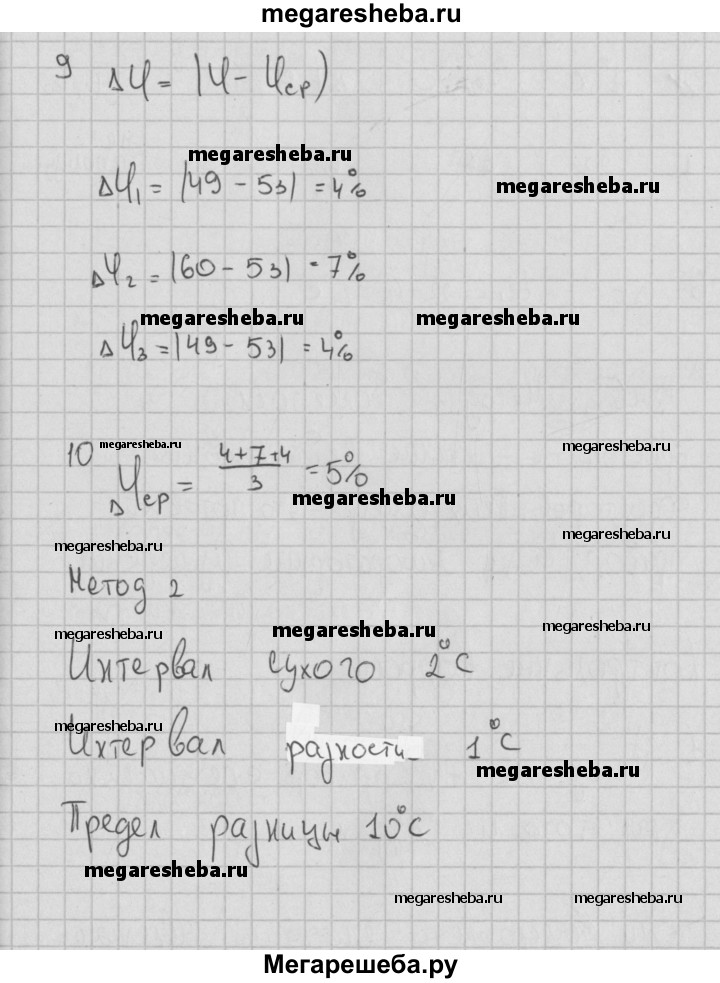 megaresheba.ru
9 Δφ = |φ - φср)
megaresheba.ru
Δφ₁ = |49 - 53| = 4% megaresheba.ru
Δφ₂ = |60 - 53| = 7%
megaresheba.ru megaresheba.ru
Δφ₃ = |49 - 53| = 4%
10 megaresheba.ru megaresheba.ru
Δφср = (4+7+4)/3 = 5%
megaresheba.ru
megaresheba.ru megaresheba.ru
Метод 2
megaresheba.ru megaresheba.ru megaresheba.ru
Интервал сухого 2°C
megaresheba.ru
Интервал разности 1°C
megaresheba.ru
Предел разницы 10°C
megaresheba.ru
megaresheba.ru megaresheba.ru
Мегарешеба.ру